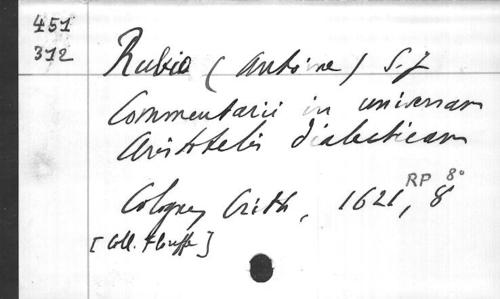 451
312
Rubio (Antoine) S.J
Commentarii in universam
Aristotelis dialecticam
Cologne, 1621, RP 8 8°
[Coll.